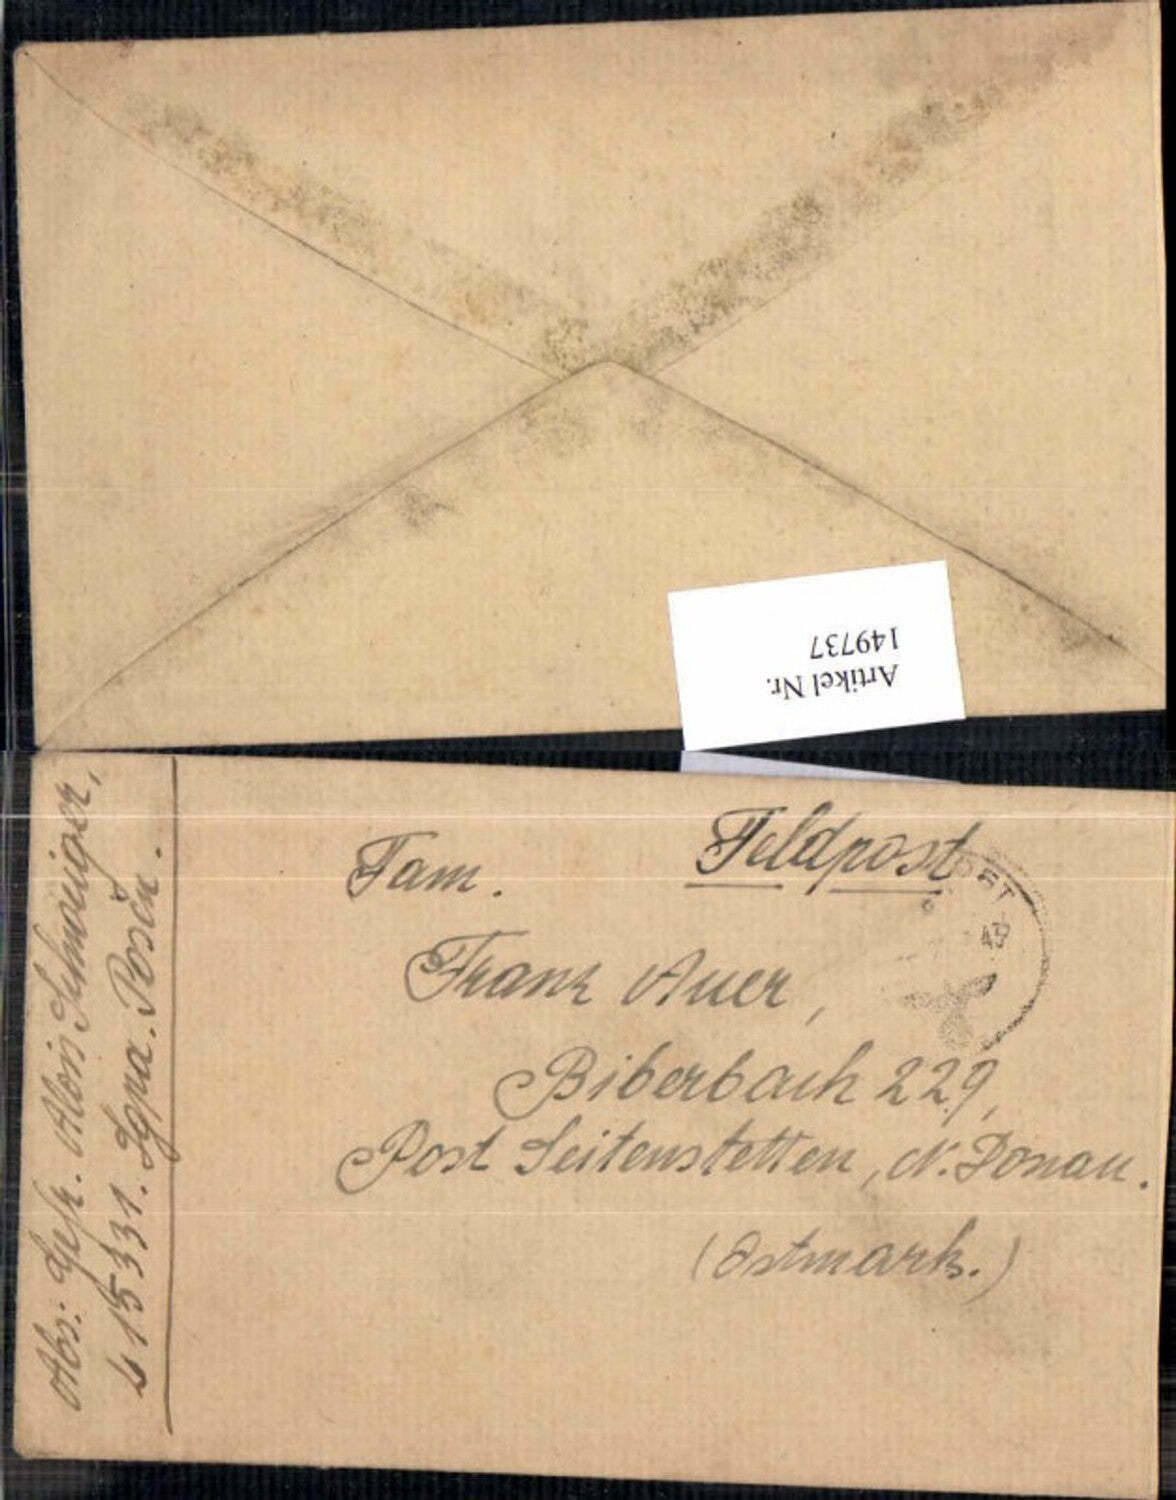 Artikel Nr.
149737
Feldpost
Fam.
Franz Auer,
Biberbach 229,
Post Seitenstetten, N. Donau.
(Ostmark.)
Abs: Gefr. Alois Schweiger,
L 15331. Lgpa. Posen.
43